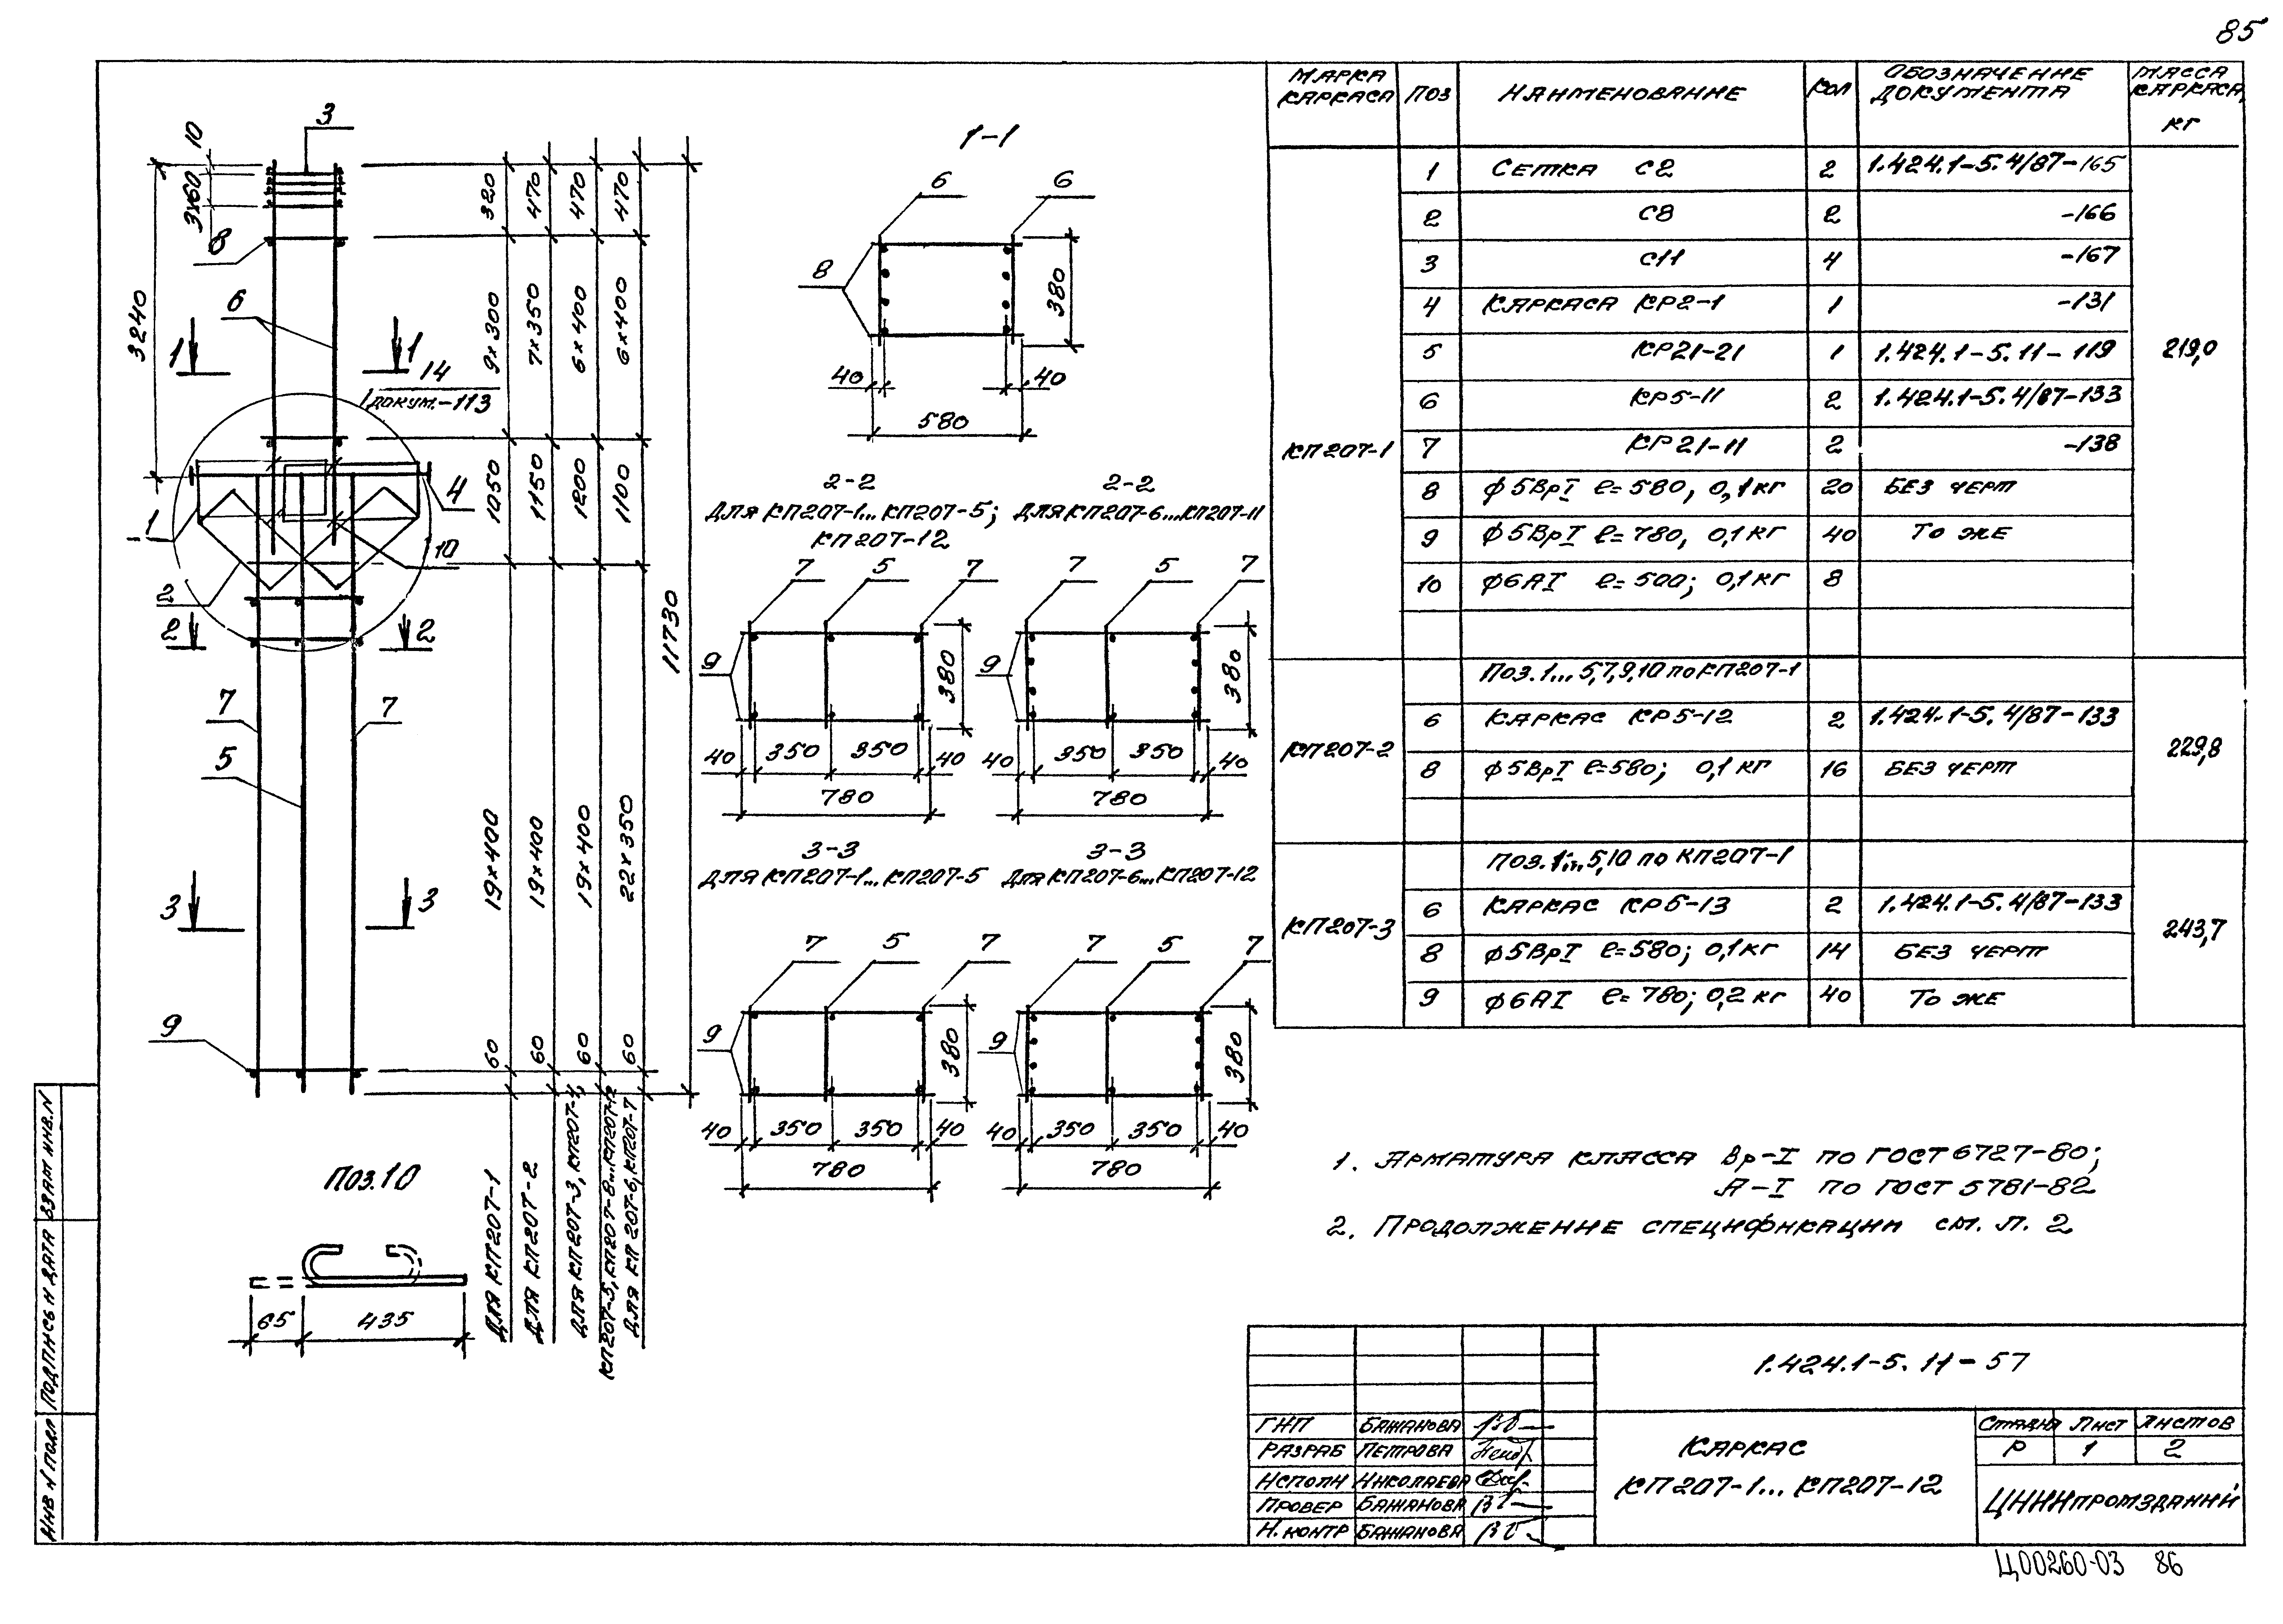 85
МАРКА КАРКАСА ПОЗ НАИМЕНОВАНИЕ КОЛ ОБОЗНАЧЕНИЕ ДОКУМЕНТА МАССА КАРКАСА, КГ
КП207-1 219,0
1 СЕТКА С2 2 1.424.1-5.4/87-165
2 С8 2 -166
3 С11 4 -167
4 КАРКАСА КР2-1 1 -131
5 КР21-21 1 1.424.1-5.11-119
6 КР5-11 2 1.424.1-5.4/87-133
7 КР21-11 2 -138
8 ф5ВрI ℓ=580, 0,1кг 20 БЕЗ ЧЕРТ
9 ф5ВрI ℓ=780, 0,1кг 40 ТО ЖЕ
10 ф6АI ℓ=500; 0,1кг 8
КП207-2 229,8
ПОЗ.1...5,7,9,10 по КП207-1
6 КАРКАС КР5-12 2 1.424.1-5.4/87-133
8 ф5ВрI ℓ=580; 0,1кг 16 БЕЗ ЧЕРТ
КП207-3 243,7
ПОЗ.1...5,10 по КП207-1
6 КАРКАС КР5-13 2 1.424.1-5.4/87-133
8 ф5ВрI ℓ=580; 0,1кг 14 БЕЗ ЧЕРТ
9 ф6АI ℓ=780; 0,2кг 40 ТО ЖЕ
3
10
3х60
8
3240
6
1 1
14
докум.-113
4
1
10
2
2 2
7 7
5
3 3
9
320 470 470 470
9х300 7х350 6х400 6х400
1050 1150 1200 1100
11730
19х400 19х400 19х400 22х350
60 60 60 60
ДЛЯ КП207-1
ДЛЯ КП207-2
ДЛЯ КП207-3, КП207-4,
КП207-5, КП207-8...КП207-12
ДЛЯ КП207-6, КП207-7
Поз.10
65 435
1-1
6 6
8
380
40 40
580
2-2
ДЛЯ КП207-1...КП207-5;
КП207-12
7 5 7
9
380
40 350 350 40
780
2-2
ДЛЯ КП207-6...КП207-11
7 5 7
9
380
40 350 350 40
780
3-3
ДЛЯ КП207-1...КП207-5
7 5 7
9
380
40 350 350 40
780
3-3
Для КП207-6...КП207-12
7 5 7
9
380
40 350 350 40
780
1. АРМАТУРА КЛАССА Вр-I ПО ГОСТ 6727-80;
А-I ПО ГОСТ 5781-82
2. ПРОДОЛЖЕНИЕ СПЕЦИФИКАЦИИ СМ. Л. 2
1.424.1-5.11-57
ГИП БАЖАНОВА
РАЗРАБ ПЕТРОВА
ИСПОЛН НИКОЛАЕВА
ПРОВЕР БАЖАНОВА
Н.КОНТР БАЖАНОВА
КАРКАС
КП207-1...КП207-12
СТАДИЯ ЛИСТ ЛИСТОВ
Р 1 2
ЦНИИпромзданий
ИНВ N ПОДЛ ПОДПИСЬ И ДАТА ВЗАМ ИНВ.N
Ц00260-03 86